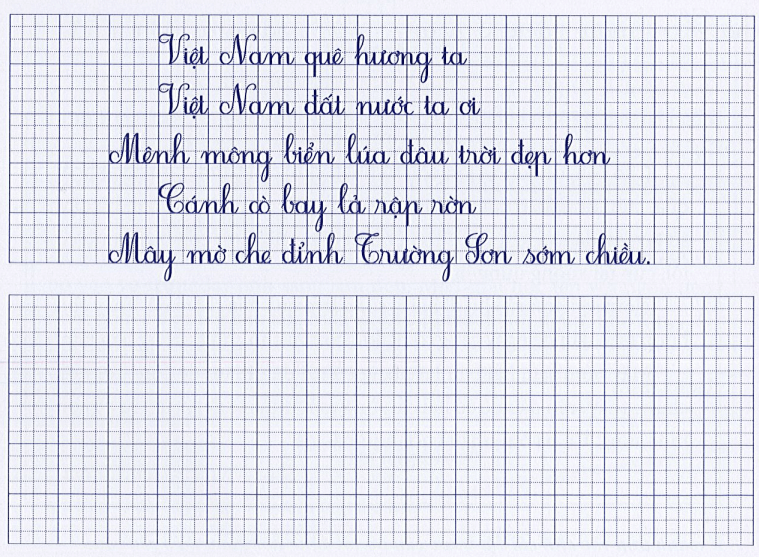 Việt Nam quê hương ta
Việt Nam đất nước ta ơi
Mênh mông biển lúa đâu trời đẹp hơn
Cánh cò bay lả rập rờn
Mây mờ che đỉnh Trường Sơn sớm chiều.